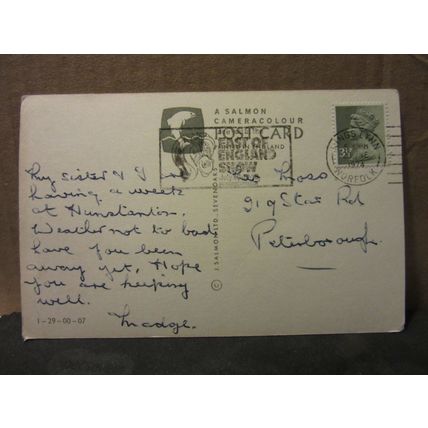 A SALMON
CAMERACOLOUR
POST CARD
PRINTED IN ENGLAND
EAST OF
ENGLAND
SHOW
KINGS LYNN
NORFOLK
1974
3½
J. SALMON LTD. SEVENOAKS ©
My sister & I
having a week
at Hunstanton.
Weather not to bad
have you been
away yet, Hope
you are keeping
well.
Madge.
Moss
919 Star Rd
Peterborough.
1-29-00-07